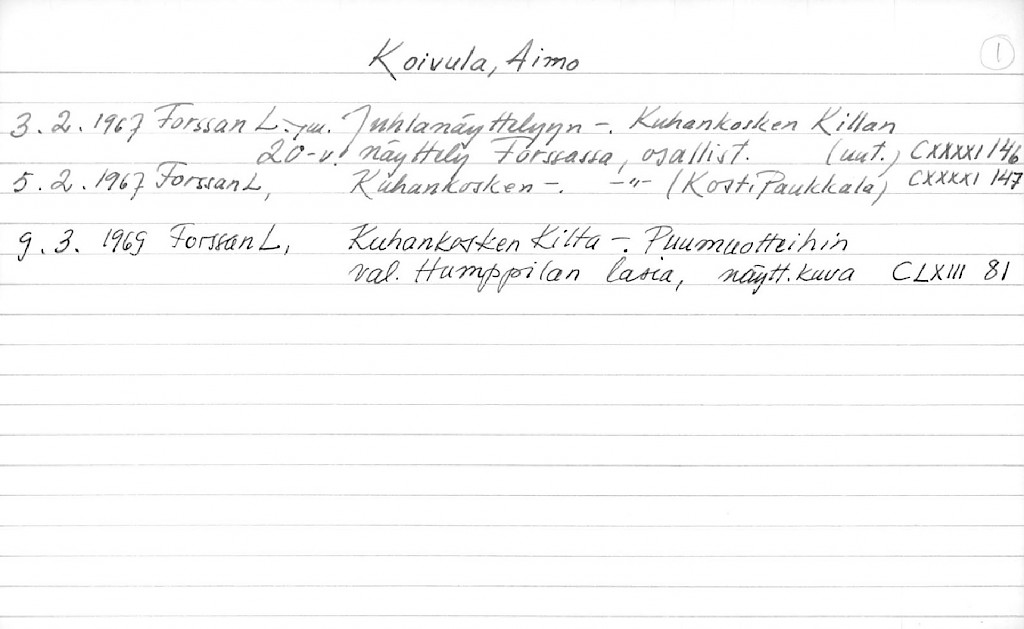 Koivula, Aimo
1
3.2.1967 Forssan L. -ym. Juhlanäyttelyyn -. Kuhankosken Killan
20-v. näyttely Forssassa, osallist. (uut.) CXXXXI 146
5.2.1967 Forssan L, Kuhankosken -. -"- (Kosti Paukkala) CXXXXI 147
9.3.1969 Forssan L, Kuhankosken Kilta -. Puumuotteihin
val. Humppilan lasia, näytt. kuva CLXIII 81